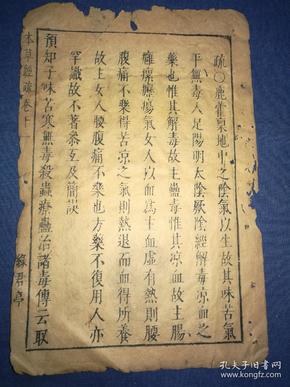 疏○鹿藿稟地中之陰氣以生故其味苦氣
平無毒入足陽明太陰厥陰經解毒涼血之
藥也惟其解毒故主蠱毒惟其涼血故主腸
癰瘰癧瘍氣女人以血為主血虛有熱則腰
腹痛不樂得苦涼之氣則熱退而血得所養
故主女人腰腹痛不樂也方藥不復用人亦
罕識故不著叅互及簡誤
預知子味苦寒無毒殺蟲療蠱治諸毒傳云取
本草經疏卷十一
綠君亭
孔夫子旧书网